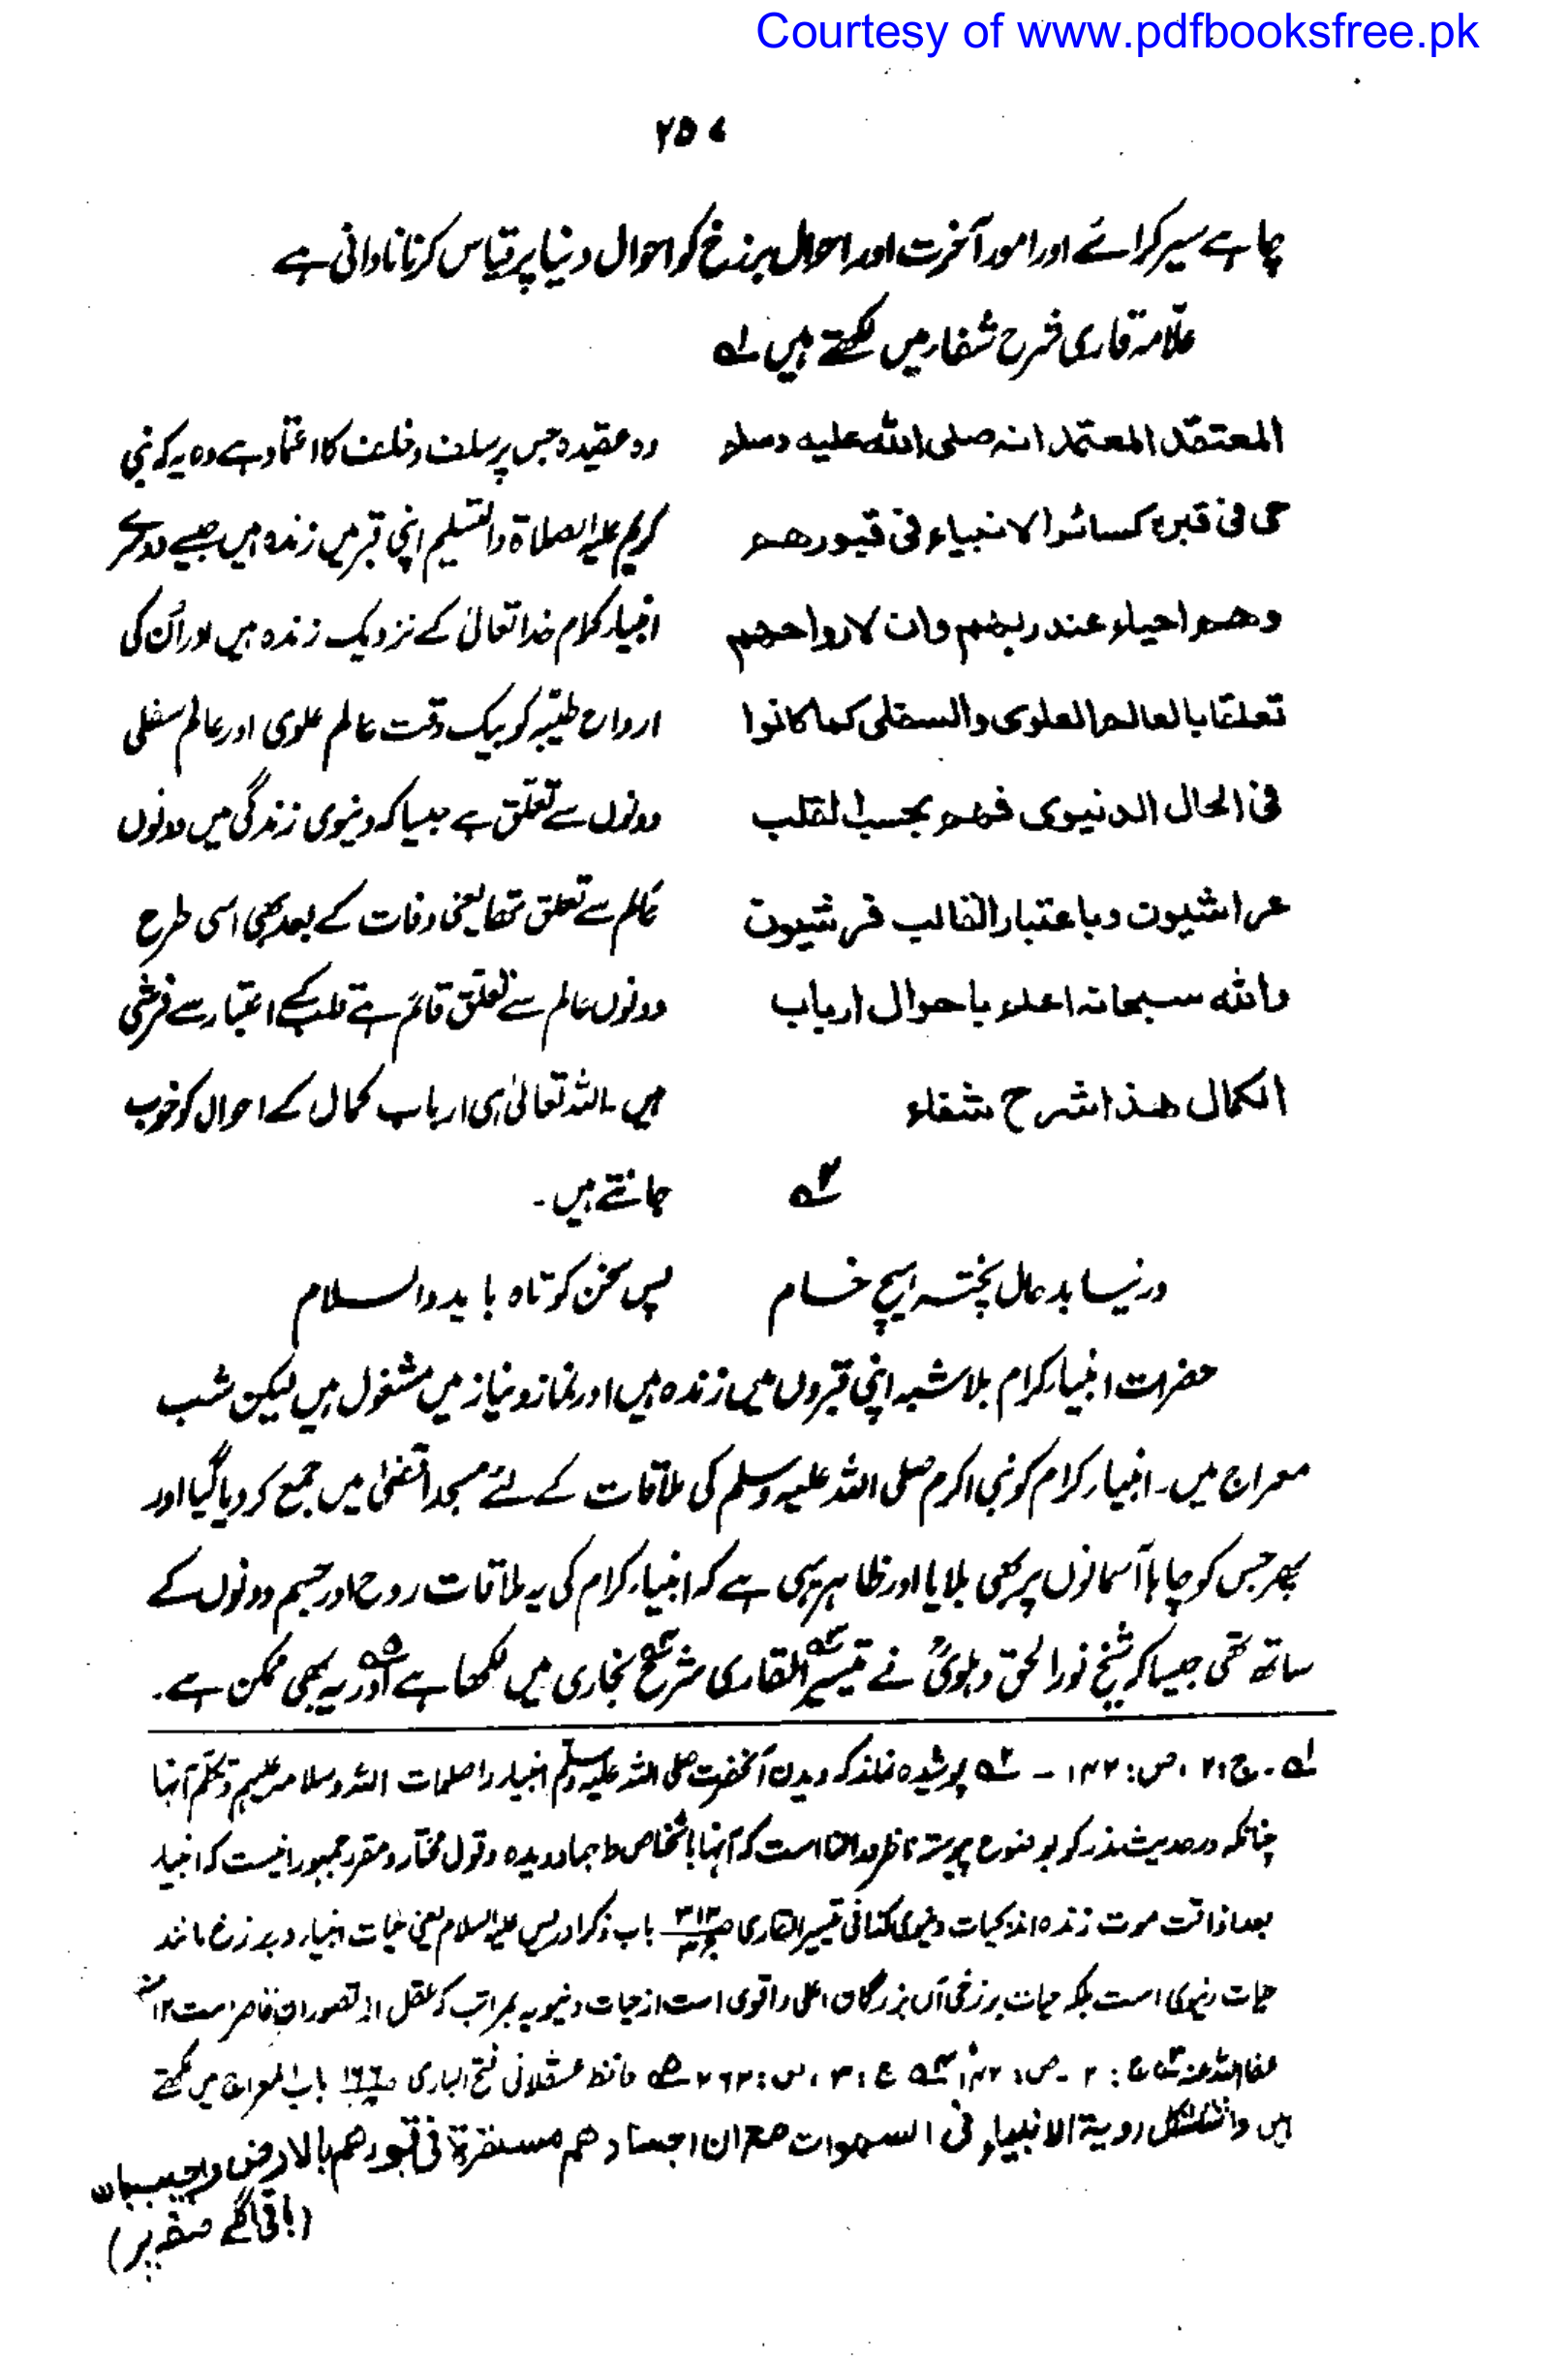 Courtesy of www.pdfbooksfree.pk
۲۵۷
چاہے سیر کرائے اور امور آخرت اور احوال برزخ کو احوال دنیا پر قیاس کرنا نادانی ہے
علامہ قاری شرح شفاء میں لکھتے ہیں لہ
المعتقد المعتمد انہ صلی اللہ علیہ وسلم
حی فی قبرہ کسائر الانبیاء فی قبورھم
وھم احیاء عند ربھم وان لارواحھم
تعلقا بالعالم العلوی والسفلی کما کانوا
فی الحال الدنیوی فھم بحسب القلب
عراشیون وباعتبار القالب فرشیون
واللہ سبحانہ اعلم باحوال ارباب
الکمال ھذا شرح شفاء
۲ہ
وہ عقیدہ جس پر سلف و خلف کا اعتماد ہے وہ یہ کہ نبی
کریم علیہ الصلاۃ والتسلیم اپنی قبر میں زندہ ہیں جیسے دوسرے
انبیاء کلام خدا تعالیٰ کے نزدیک زندہ ہیں اور اُن کی
ارواح طیبہ کو بیک وقت عالم علوی اور عالم سفلی
دونوں سے تعلق ہے جیسا کہ دنیوی زندگی میں دونوں
عالم سے تعلق تھا یعنی وفات کے بعد بھی اسی طرح
دونوں عالم سے تعلق قائم ہے قلب کے اعتبار سے فرشی
ہیں۔ اللہ تعالیٰ ہی ارباب کمال کے احوال کو خوب
جانتے ہیں۔
در نیابد حال پختہ ہیچ خام پس سخن کوتاہ باید والسلام
حضرات انبیاء کرام بلا شبہ اپنی قبروں میں زندہ ہیں اور نماز و نیاز میں مشغول ہیں لیکن شب
معراج میں۔ انبیاء کرام کو نبی اکرم صلی اللہ علیہ وسلم کی ملاقات کے لئے مسجد اقصیٰ میں جمع کر دیا گیا اور
پھر جس کو چاہا آسمانوں پر بھی بلایا اور ظاہر یہی ہے کہ انبیاء کرام کی یہ ملاقات روح اور جسم دونوں کے
ساتھ تھی جیسا کہ شیخ نور الحق دہلوی نے تیسیر القاری شرح بخاری میں لکھا ہے اور یہ بھی ممکن ہے۔
لہ ۔ ج: ۲، ص: ۱۴۲ ۔ ۲ہ پوشیدہ نماند کہ دیدن آنحضرت صلی اللہ علیہ وسلم انبیاء را صلوات اللہ وسلامہ علیہم وتکلم آنہا
چنانکہ در حدیث مذکور بوضوع پیوستہ ناظر است کہ آنہا باشخاص دیدہ وقول مختار و مقرر جمہور انیست کہ انبیاء
بعد اذاقت موت زندہ اند بحیات دنیوی کذا فی تیسیر القاری باب ذکر ادریس علیہ السلام یعنی حیات انبیاء در برزخ مانند
حیات دنیوی است بلکہ حیات برزخی آں بزرگان اعلی واقوی است از حیات دنیویہ بمراتب کہ عقل از تصور آن قاصر است ۱۲
عفا اللہ عنہ ج: ۲ ۔ ص: ج: ۳، ص: ۲۶۲ حافظ عسقلانی فتح الباری باب المعراج میں لکھتے
ہیں واستشکل رویۃ الانبیاء فی السموات مع ان اجسادھم مستقرۃ فی قبورھم بالارض واجیب بان
(باقی اگلے صفحہ پر)